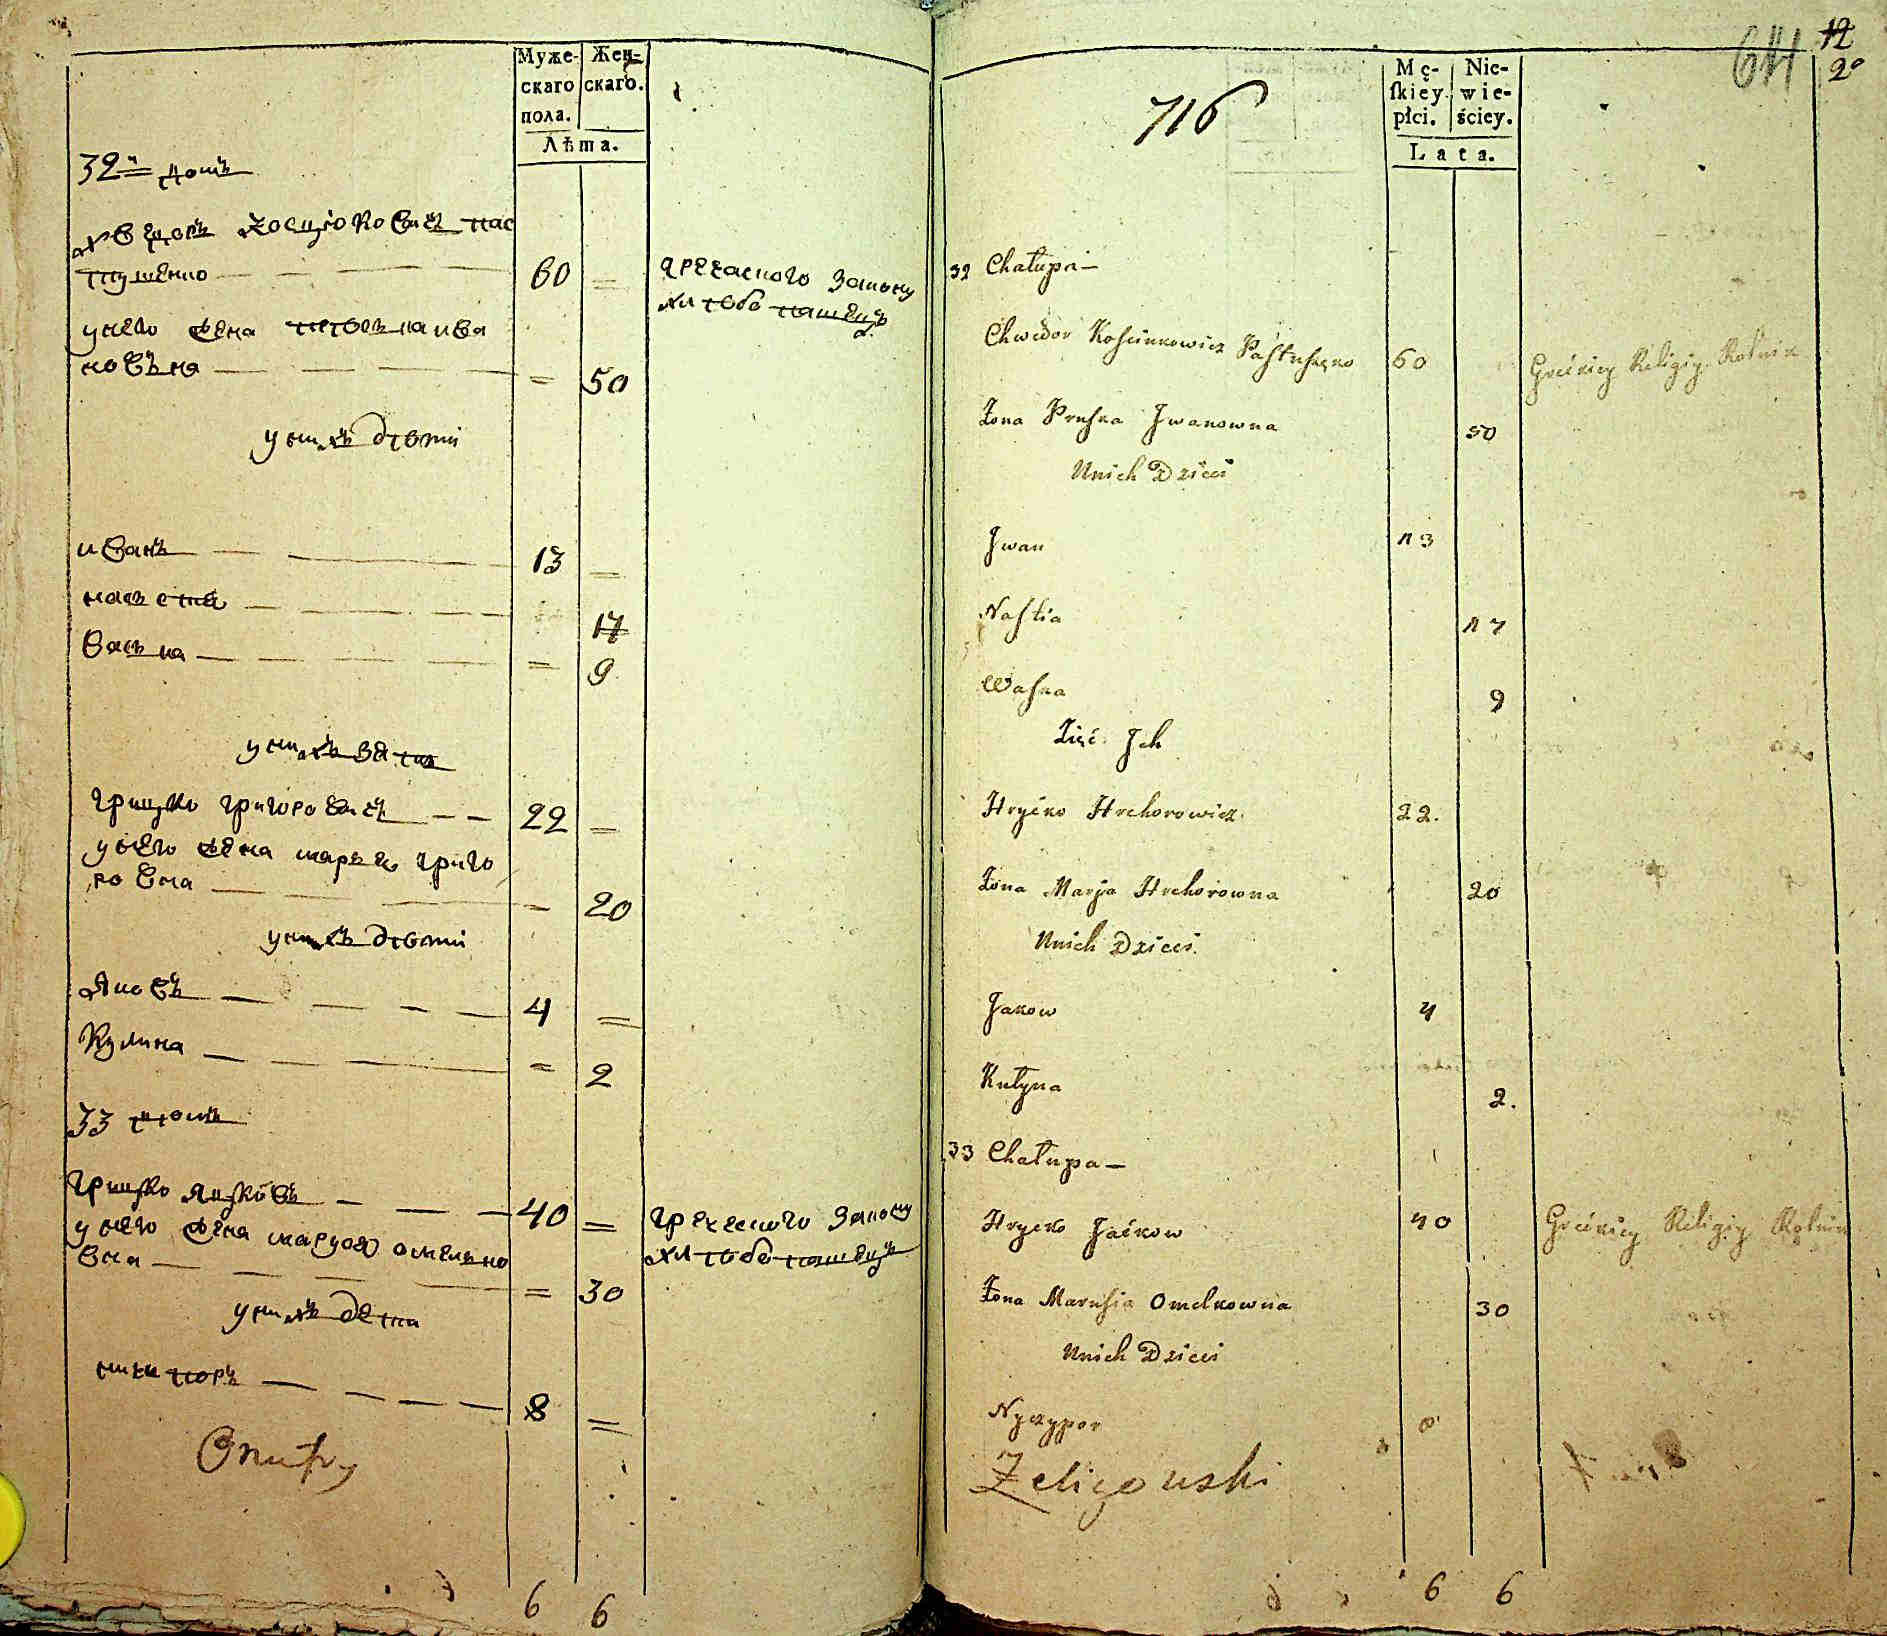 Муже-
скаго
пола.
Жен-
скаго.
Лѣта.
32й домъ
Хведоръ Косцюковичъ пас
тушенко 60 =
греческого закону
хлѣбопашецъ
у него жена
новъна = 50
у нихъ дѣти
иванъ 13 =
насътя 17
васька = 9
у нихъ зять
грицко григоровичъ 22 =
у него жена марья григо
ровна = 20
у нихъ дѣти
Яковъ 4 =
Кулина = 2
33 домъ
грицко яцковъ 40 =
греческого закону
хлѣбопашецъ
у него жена маруся омелько
вна = 30
у нихъ дети
никипоръ 8 =
6 6
641
12
20
716
Mę-
ſkiey
płci.
Nie-
wie-
ściey.
Lata.
32 Chałupa
Chwedor Kościukowicz Pastuszęko 60
Greckiey Religiy Rolnik
Żona Pruska Jwanowna 50
Unich Dzieci
Jwan 13
Nastia 17
Waska 9
Zięć Jch
Hryćko Hrehorowicz 22.
Żona Marja Hrehorowna 20
Unich Dzieci.
Jakow 4
Kułyna 2.
33 Chałupa
Hryćko Jaćkow 40
Greckiey Religiy Rolnik
Żona Marusia Omelkowna 30
Unich Dzieci
Nyczypor 8
Zeligowski
6 6